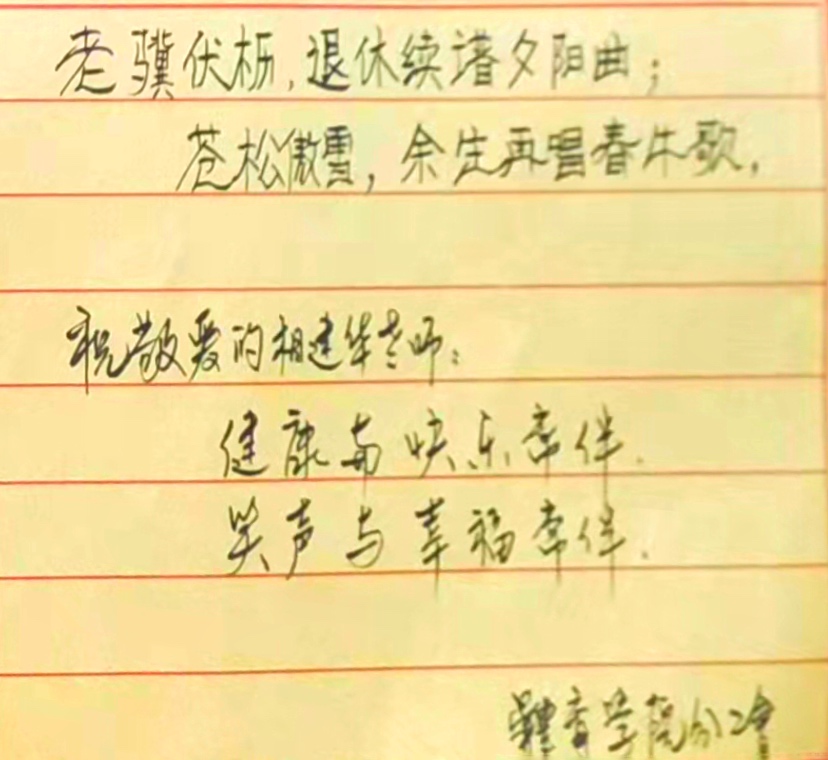 老骥伏枥,退休续谱夕阳曲;
苍松傲雪,余生再唱春牛歌,
祝敬爱的相建华老师:
健康与快乐常伴.
笑声与幸福常伴.
體育学院分工会